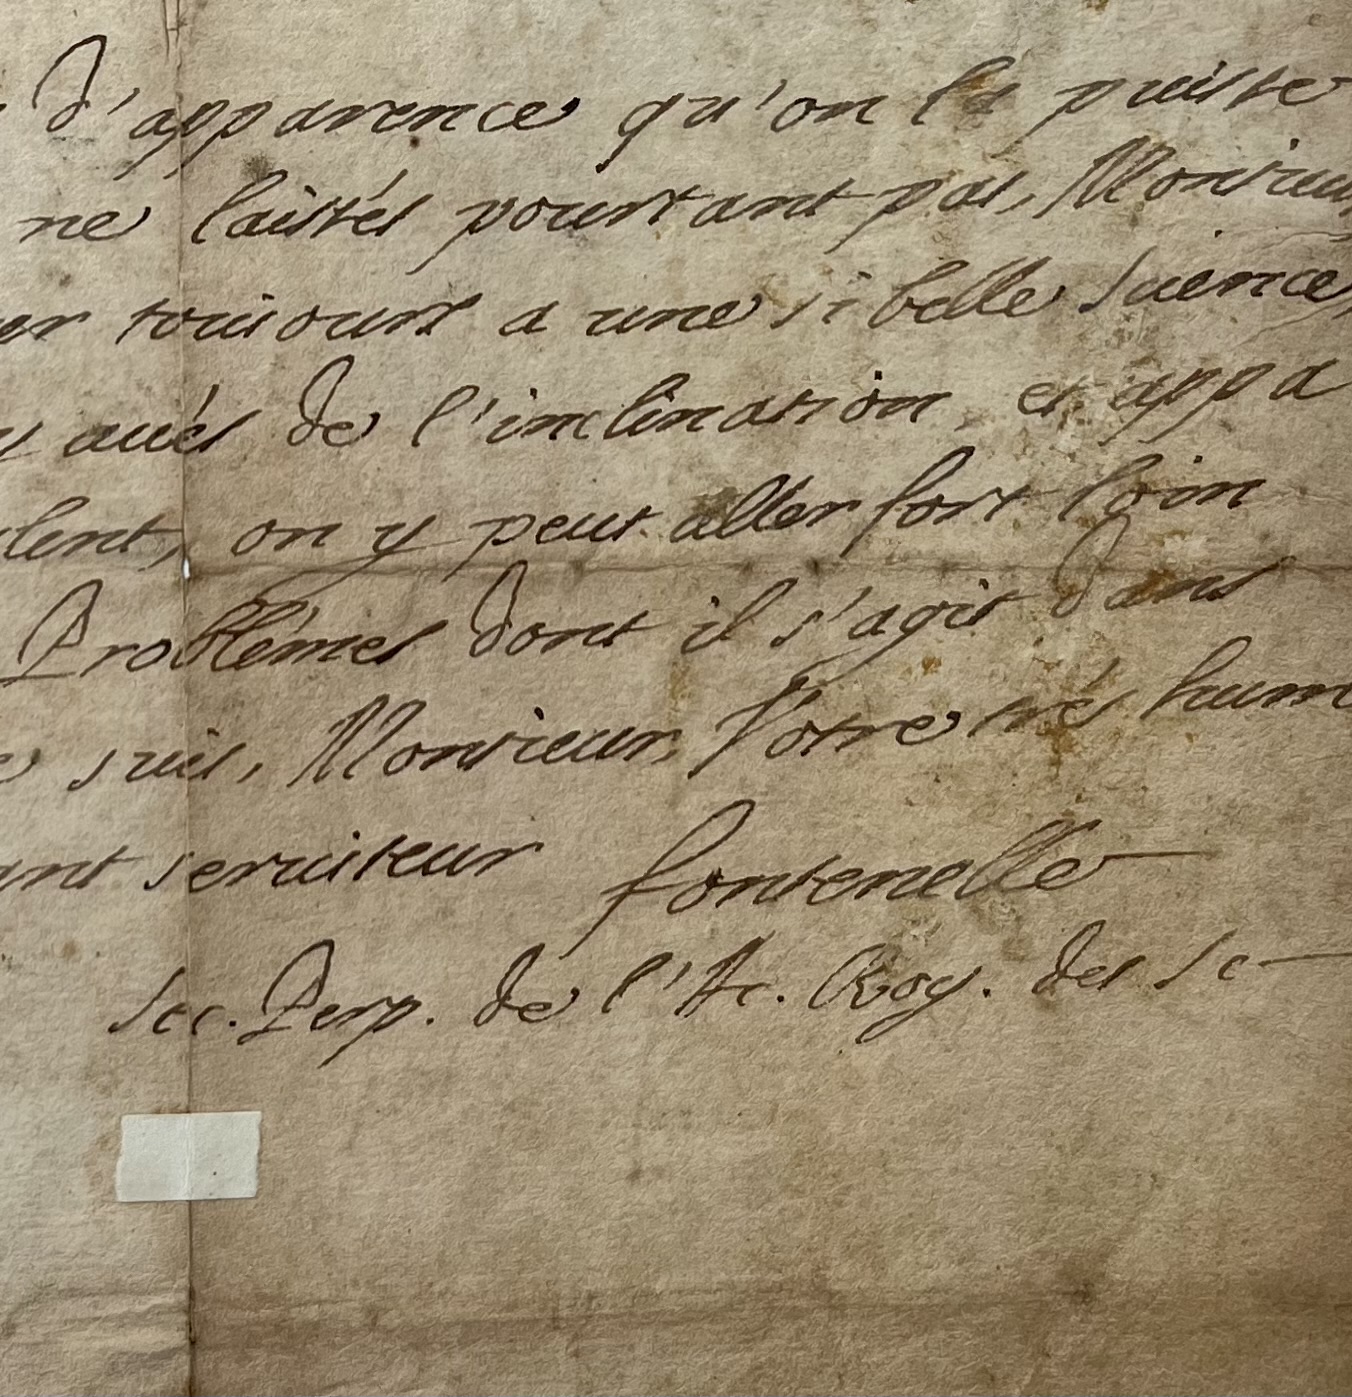 d'apparence qu'on la puisse
ne laissés pourtant pas, Monsieur
er tousiours a une si belle science,
s avés de l'inclination, et appa
lent, on y peut aller fort loin
Problêmes dont il s'agit dans
e suis, Monsieur, Votre trés hum
ant serviteur fontenelle
Sec. Perp. de l'Ac. Roy. des Sc